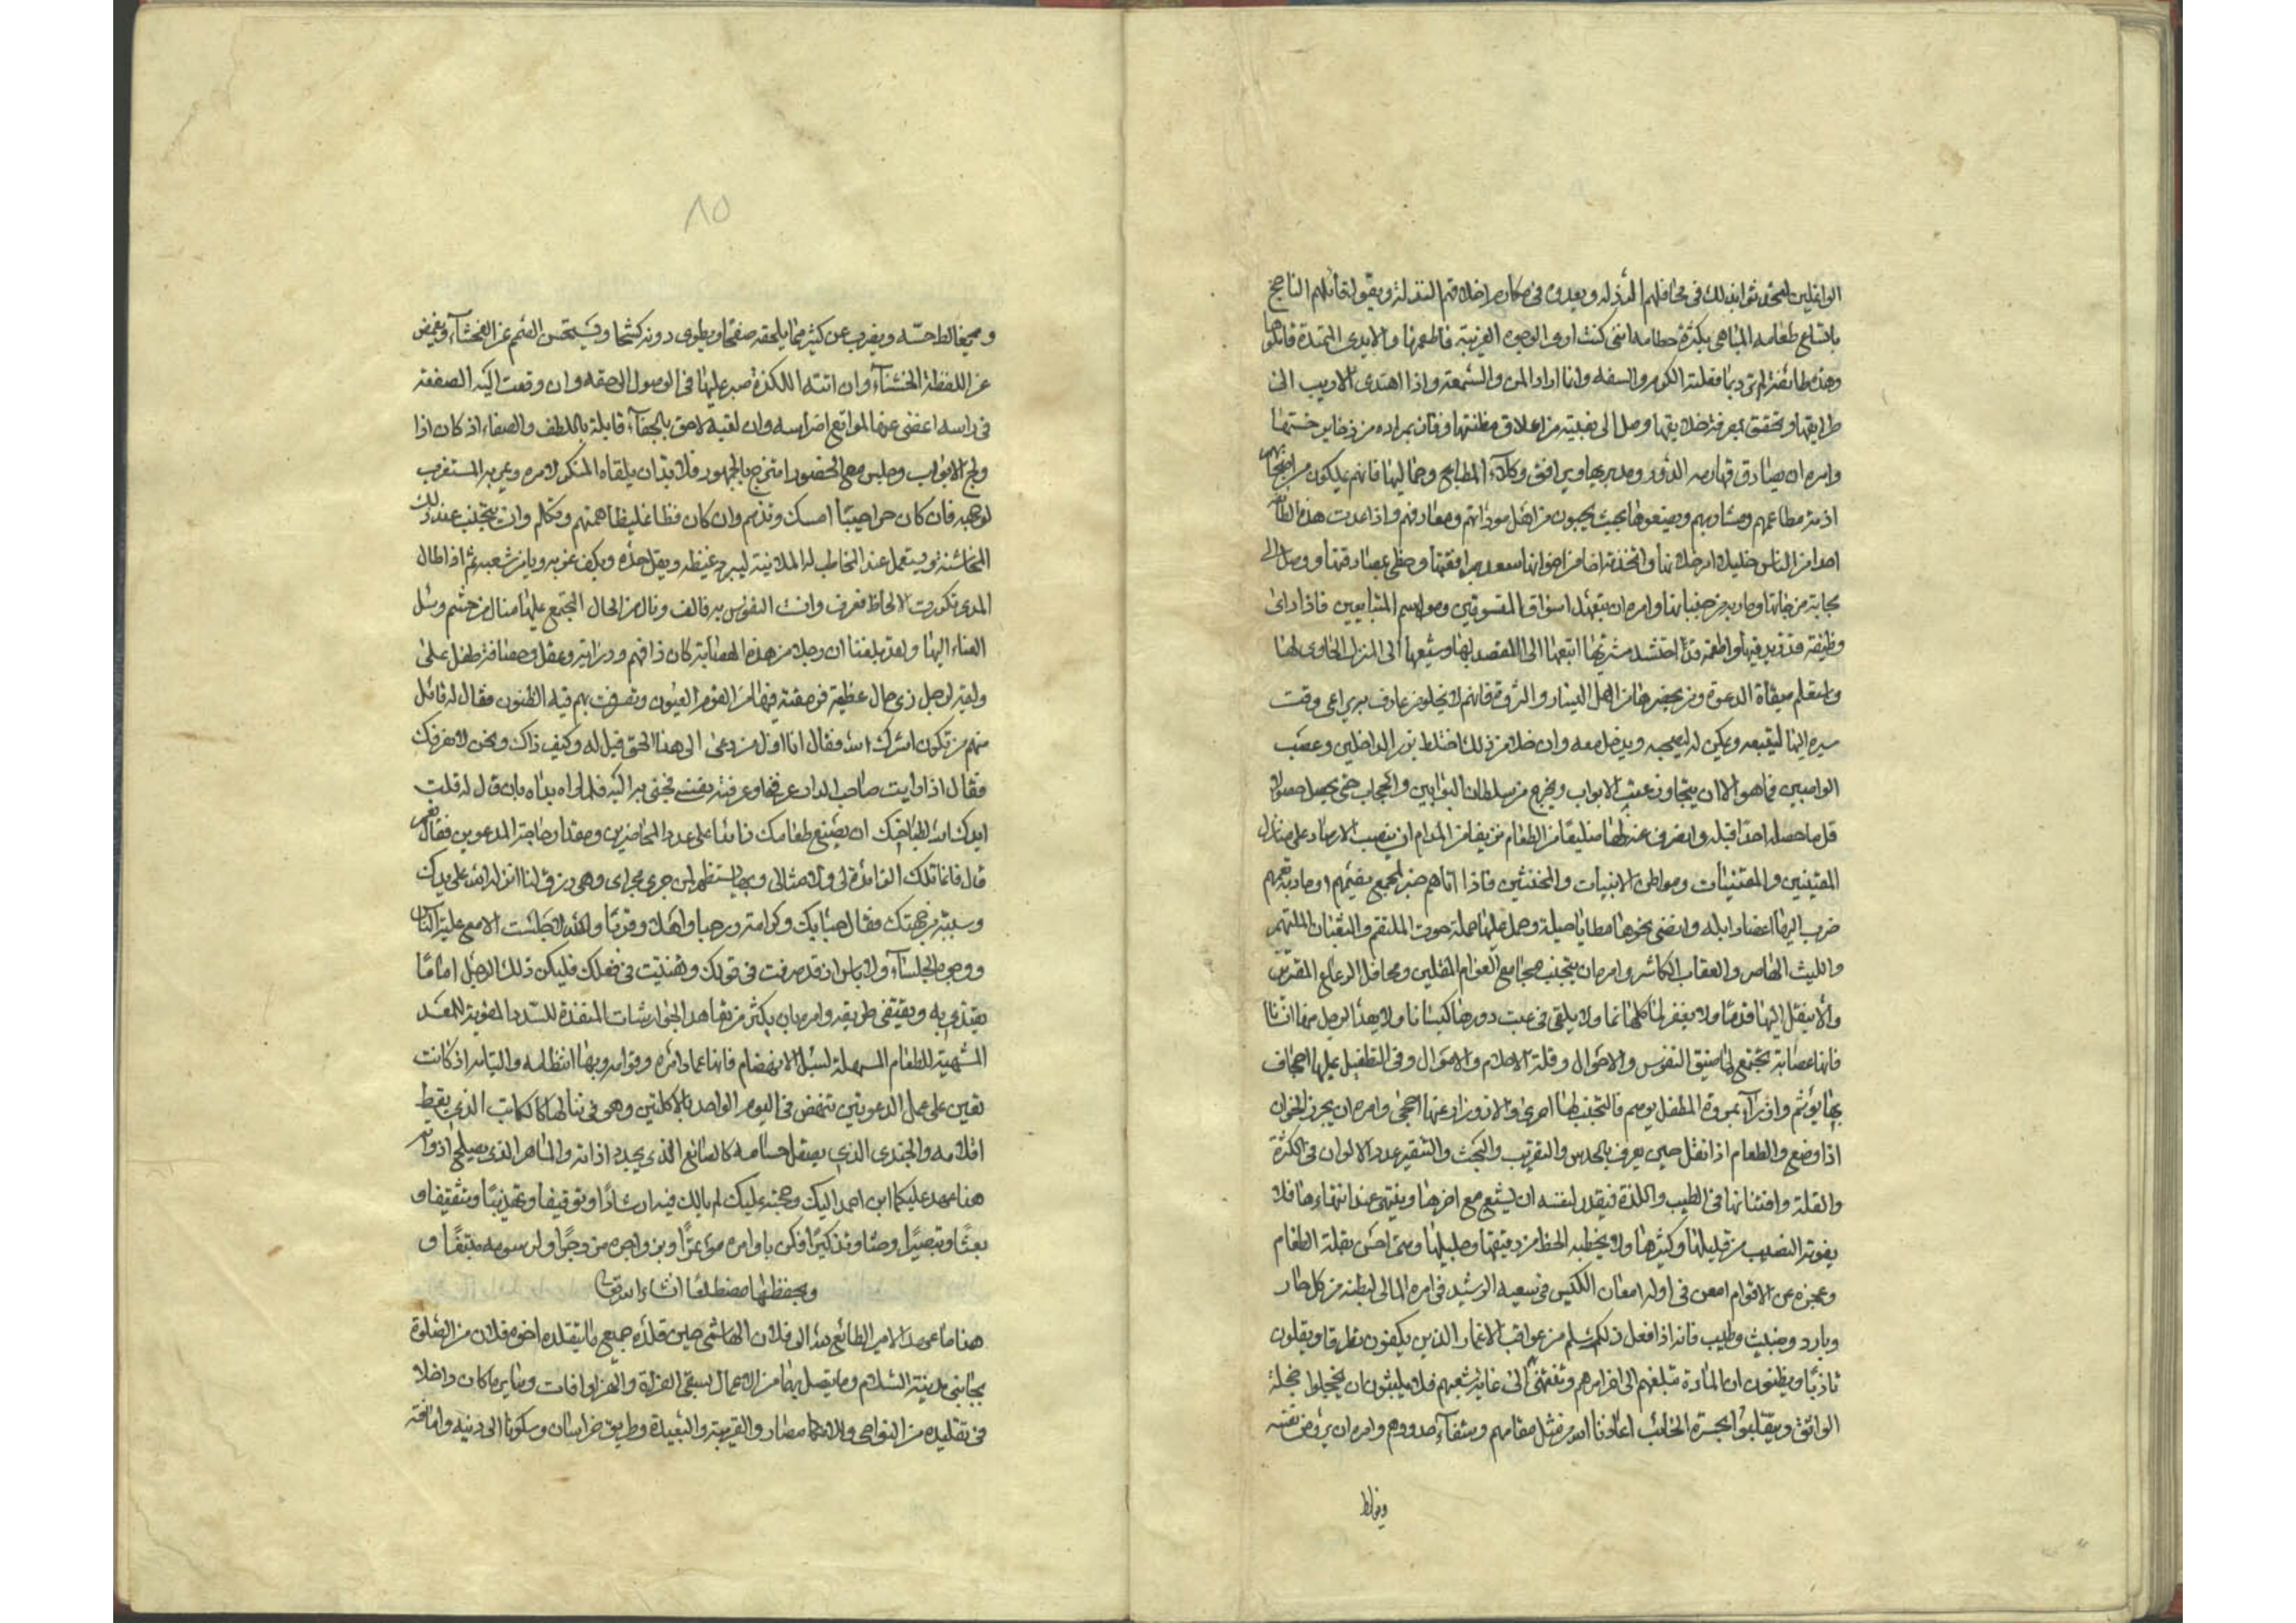 الواغلين لتحدثوا بذلك في محافلهم الرذلة ويعدوه في مكارم اخلاقهم النذلة ويقول قائلهم الناجح
باتساع طعامه المباهي بكثرة حطامه انني كنت ارى الوجوه الغريبة فاطعمها والايدي الممتدة فاملؤها
وهذه طائفة لم ترد بما فعلته الكرم والسعه وانما ارادت المن والسمعة واذا اهتدى الاريب الى
طرايقها وتحقق بمعرفة خلايقها وصل الى بغيته من اعلاق مظنتها وفاز بمراده من ذخاير خستها
وامره ان يصادق قهارمه الدور ومدبريها ويرافق وكلاء المطابخ وحماليها فانهم يملكون من اصحابهم
ازمة مطاعمهم ومشاربهم ويضعونها بحيث يحبون من اهل موداتهم ومعارفهم واذا عدت هذه الطائفة
احدا من الناس خليلا من خلانها واتخذته اخا من اخوانها سعد بمرافقتها وحظى بمصادقتها ووصل الى
محابة من جهاتها وماربه من جنباتها وامره ان يتعهد اسواق المتسوقين ومواسم المتبايعين فاذا راى
وظيفة قد زيد فيها واطعمة قد احتشد مشتريها اتبعها الى المقصد بها وشيعها الى المنزل الحاوي لها
واستعلم ميقات الدعوة ومن يحضرها من اهل اليسار والثروة فانهم لا يخلون من عارف به يراعي وقت
مسيره اليها ليتبعه ويكمن له ليصحبه ويدخل معه وان خلا من ذلك اختلط بزمر الداخلين وعصب
الواصلين فما هو الا ان يتجاوز عتب الابواب ويخرج من سلطان البوابين والحجاب حتى يحصل حصولا
قل ما حصله احد قبله وانصرف عنه الا ضليعا من الطعام نزيفا من المدام ان ينصب الارصاد على منازل
المغنين والمغنيات ومواطن الابليات والمخنثين فاذا اتاهم خبر لجمع يضمهم او مادبة تعمهم
ضرب اليها اعضاد ابله وانضى نحوها مطايا حيله وحمل عليها حملة حوت الملتقم والثعبان الملتهم
والليث الهاصر والعقاب الكاسر وامره ان يتجنب مجامع العوام المقلين ومحافل الرعاع المقترين
والا ينقل اليها قدما ولا يفغر لماكلها فما ولا يلقى في عتب دورها كيسانا ولا يعد الرجل منها انسانا
فانها عصابة يجتمع لها ضيق النفوس والاحوال وقلة الاحلام والاموال وفي التطفيل عليها اجحاف
بها يؤثم وازراء بمروة المطفل يوصم فالتجنب لها احرى والازورار عنها احجى وامره ان يحرز الخوان
اذا وضع والطعام اذا نقل حين يعرف بالحدس والتقريب والبحث والتنقير عدد الالوان في الكثرة
والقلة وافتنانها في الطيب واللذة فيقدر لنفسه ان يشبع مع اخرها وينتهي عند انتهاءها فلا
يفوته النصيب من قليلها وكثيرها ولا يخطيه الحظ من دقيقها وجليلها ومتى احس بقلة الطعام
وعجزه عن الاقوام امعن في اوله امعان الكيس في سعيه الرشيد في امره المالي لبطنه من كل حار
وبارد وخبيث وطيب فانه اذا فعل ذلك سلم من عواقب الاغمار الذين يكفون تظرفا ويقلون
تادبا ويظنون ان المادة تبلغهم الى اخر امرهم وتنتهي الى غاية شبعهم فلا يلبثون ان يخجلوا خجلة
الواثق وينقلبوا بحسرة الخائب اعاذنا الله من مثل مقامهم وشقاء جدودهم وامره ان يروض نفسه
ويغالط
٨٥
ويغالط حسه ويضرب عن كثير مما يلحقه صفحا ويطوى دونه كشحا ويستحسن الصمم عن الفحشاء ويغمض
عن اللفظة الخشناء وان اتته اللكزة صبر عليها في الوصول الى حقه وان وقعت اليه الصفعة
في راسه اغضى عنها لمواقع اضراسه وان لقيه لاحق بالجفاء قابله باللطف والصفاء اذ كان اذا
ولج الابواب وجلس مع الحضور وامتزج بالجمهور فلا بد ان يلقاه المنكر لامره ويمر به المستغرب
لوجهه فان كان حرا حييا امسك وتذمم وان كان فظا غليظا همهم وتكلم وان يجتنب عند ذلك
المخاشنة ويستعمل عند المخاطب له الملاينة ليبرد غيظه ويقل حده ويكف غربه ويامن شغبه ثم اذا طال
المدى تكررت الالحاظ فعرف وانست النفوس به فالف ونال من الحال المجتمع عليها منال من حشم وسئل
العناء اليها ولقد بلغنا ان رجلا من هذه العصابة كان ذا فهم ودراية وعقل وحصافة طفل على
وليمة لرجل ذي حال عظيمة فرمقته فيها من القوم العيون وتصرفت بهم فيه الظنون فقال له قائل
منهم من تكون اعزك الله فقال انا اول من دعى الى هذا الحق قيل له وكيف ذاك ونحن لا نعرفك
فقال اذا رايت صاحب الدار عرفني وعرفته بنفسي فجئ به اليه فلما راه بداه بان قال له قلت
ايدك الله لطباخك ان يصنع طعامك زائدا على عدد الحاضرين ومقدار حاجة المدعوين فقال نعم
قال فانما تلك الزائدة لي ولامثالي وبها يستظهر لمن جرى مجراي وهي رزق لنا انزله الله على يدك
وسببه من جهتك فقال مرحبا بك وكرامة ورحبا واهلا وقربا والله لا جلست الا مع علية الناس
ووجوه الجلساء ولا باس اذ قد ظرفت في قولك وتفننت في فعلك فليكن ذلك الرجل اماما
يقتدي به ويقتفى طريقه وامره بان يكثر من تعاهد الجوارشات المنفذة للسدد المقوية للمعد
المشهية للطعام المسهلة لسبل الانهضام فانها عماد امره وقوامه وبها انتظامه والتيامه اذ كانت
تعين على عمل الدعوتين وتنهض في اليوم الواحد بالاكلتين وهو في تناولها كالكاتب الذي يقط
اقلامه والجندي الذي يصقل حسامه كالصانع الذي يجدد اداته والماهر الذي يصلح ادواته
هذا عهد عليكا ابن احمد اليك وحجته عليك لم يالك فيه ارشادا وتوقيفا وتهذيبا وتثقيفا و
بعثا وتبصيرا وحثا وتذكيرا فكن باوامره مؤتمرا وبزواجره مزدجرا ولرسومه متبعا و
وبحفظها مضطلعا ان شاء الله تعالى
هذا ما عهد الامير الطائع لله الى فلان الهاشمي حين قلده جميع ما يتقلده اخوه فلان من الصلوة
بجانبي مدينة السلام وما يتصل بها من الاعمال بسقي الفرات والنهروانات وسائر ما كان داخلا
في تقليده من النواحي والامصار والقريبة والبعيدة وطريق خراسان وسكونا الى دينه وامانته